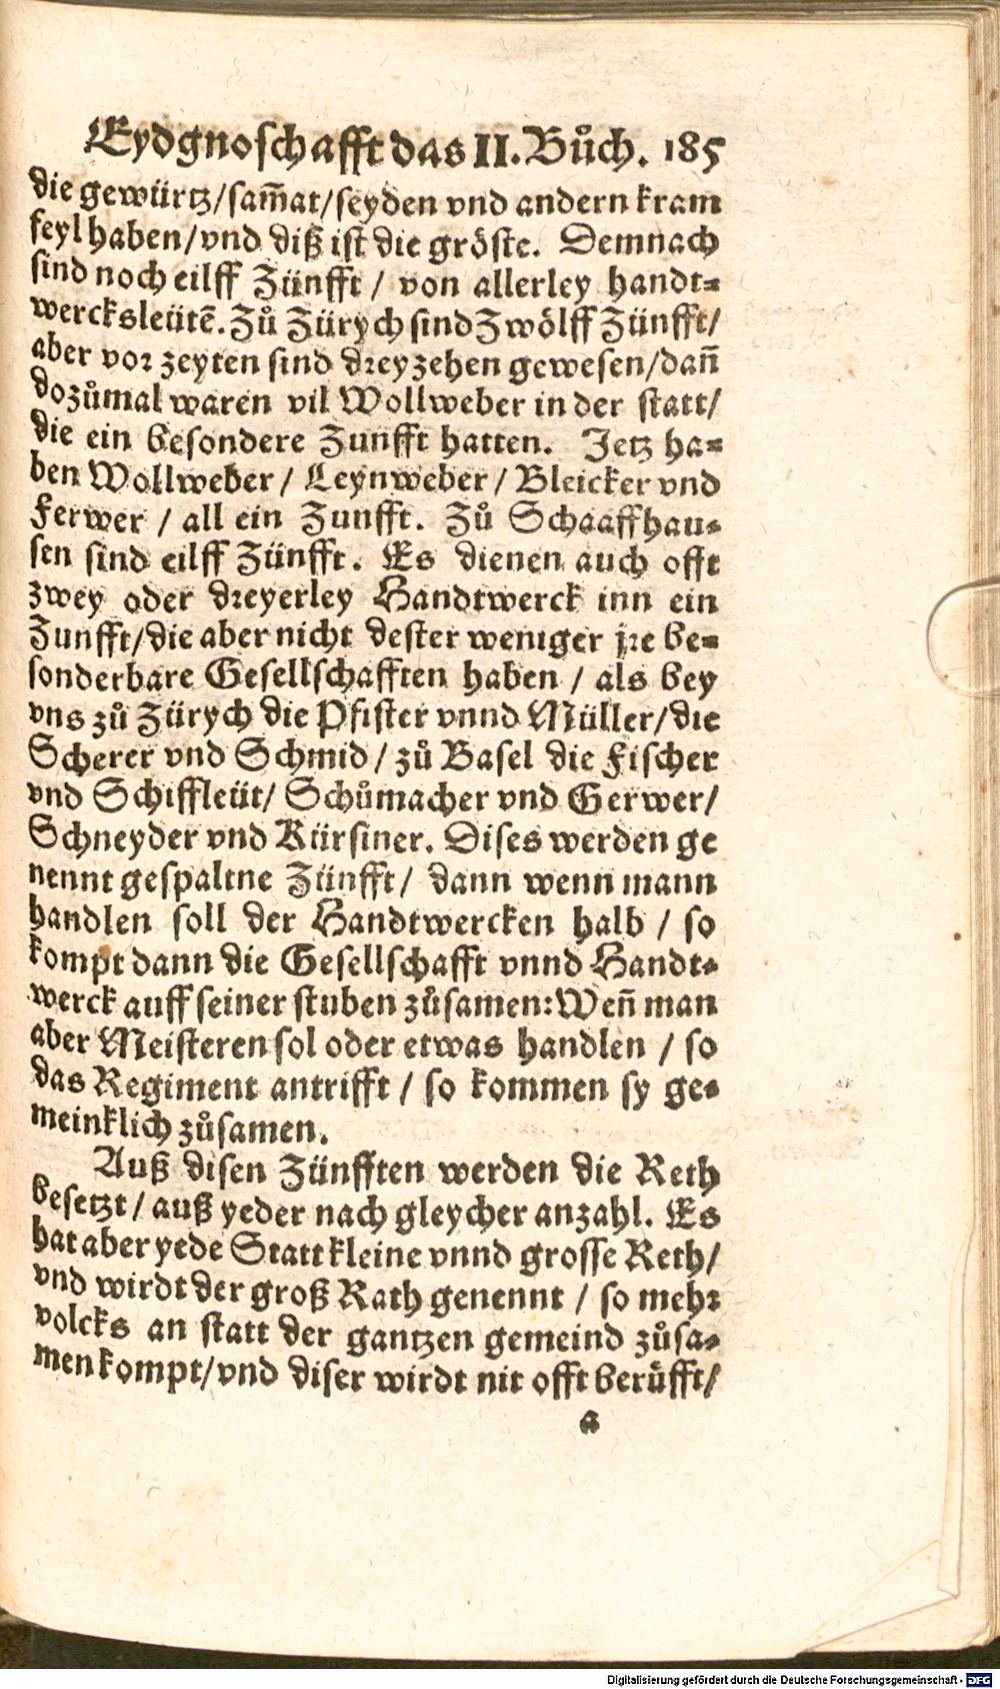 Eydgnoschafft das II. Bůch. 185
die gewürtz/sam̄at/seyden vnd andern kram
feyl haben/vnd diß ist die gröste. Demnach
sind noch eilff Zünfft / von allerley handt⸗
wercksleütē. Zů Zürych sind Zwölff Zünfft/
aber vor zeyten sind dreyzehen gewesen/dan̄
dozůmal waren vil Wollweber in der statt/
die ein besondere Zunfft hatten. Jetz ha⸗
ben Wollweber / Leynweber / Bleicker vnd
Ferwer / all ein Zunfft. Zů Schaaffhau⸗
sen sind eilff Zünfft. Es dienen auch offt
zwey oder dreyerley Handtwerck inn ein
Zunfft/die aber nicht dester weniger jre be⸗
sonderbare Gesellschafften haben / als bey
vns zů Zürych die Pfister vnnd Müller/die
Scherer vnd Schmid / zů Basel die Fischer
vnd Schiffleüt/ Schůmacher vnd Gerwer/
Schneyder vnd Kürsiner. Dises werden ge
nennt gespaltne Zünfft/ dann wenn mann
handlen soll der Handtwercken halb / so
kompt dann die Gesellschafft vnnd Handt⸗
werck auff seiner stuben zůsamen: Wen̄ man
aber Meisteren sol oder etwas handlen / so
das Regiment antrifft / so kommen sy ge⸗
meinklich zůsamen.
Auß disen Zünfften werden die Reth
besetzt / auß yeder nach gleycher anzahl. Es
hat aber yede Statt kleine vnnd grosse Reth/
vnd wirdt der groß Rath genennt / so mehr
volcks an statt der gantzen gemeind zůsa⸗
men kompt/vnd diser wirdt nit offt berüfft/
a
Digitalisierung gefördert durch die Deutsche Forschungsgemeinschaft - DFG